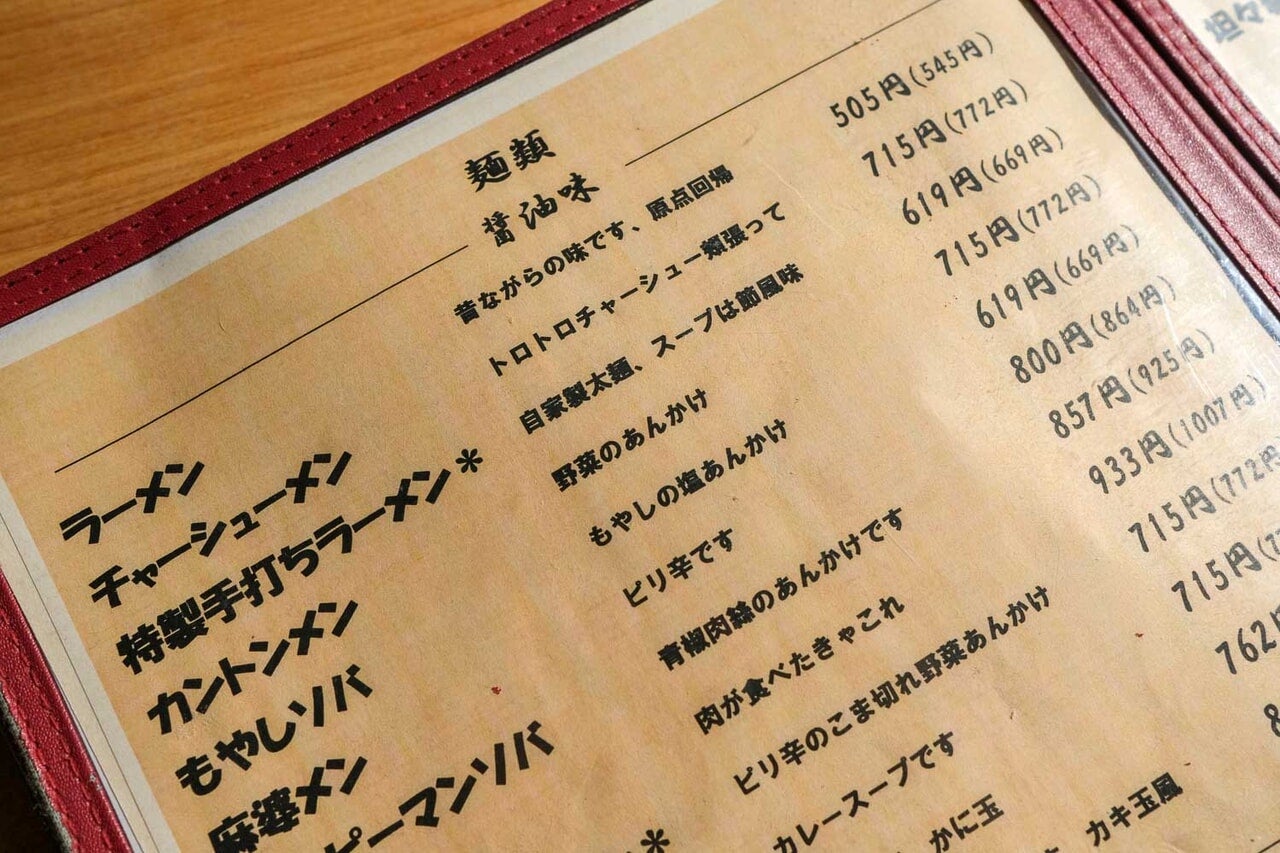 麺類
醤油味
ラーメン 昔ながらの味です、原点回帰 505円(545円)
チャーシューメン トロトロチャーシュー頬張って 715円(772円)
特製手打ちラーメン* 自家製太麺、スープは節風味 619円(669円)
カントンメン 野菜のあんかけ 715円(772円)
もやしソバ もやしの塩あんかけ 619円(669円)
麻婆メン ピリ辛です 800円(864円)
ピーマンソバ 青椒肉絲のあんかけです 857円(925円)
* 肉が食べたきゃこれ 933円(1007円)
ピリ辛のこま切れ野菜あんかけ 715円(772円
カレースープです 715円(7
かに玉 762円
カキ玉風
坦々